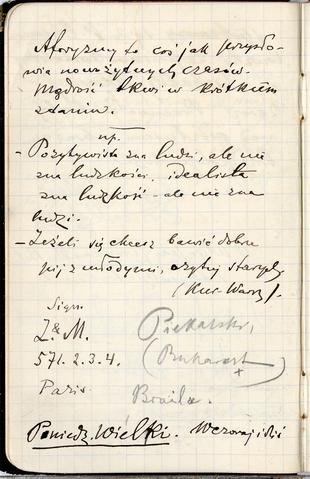 Aforyzmy to coś jak przysło-
wia nowożytnych czasów.
Mądrość tkwi w krótkiem
zdaniu.
np.
– Pozytywista zna ludzi, ale nie
zna ludzkości, idealista
zna ludzkość – ale nie zna
ludzi.
– Jeżeli się chcesz bawić dobrze
pij z młodymi, czytaj starych
(Kur. Warsz).
Sign.
Z & M.
571. 2. 3. 4.
Paris
(Bucharest
+
Braila.
Poniedz. Wielki. Wczoraj i dziś